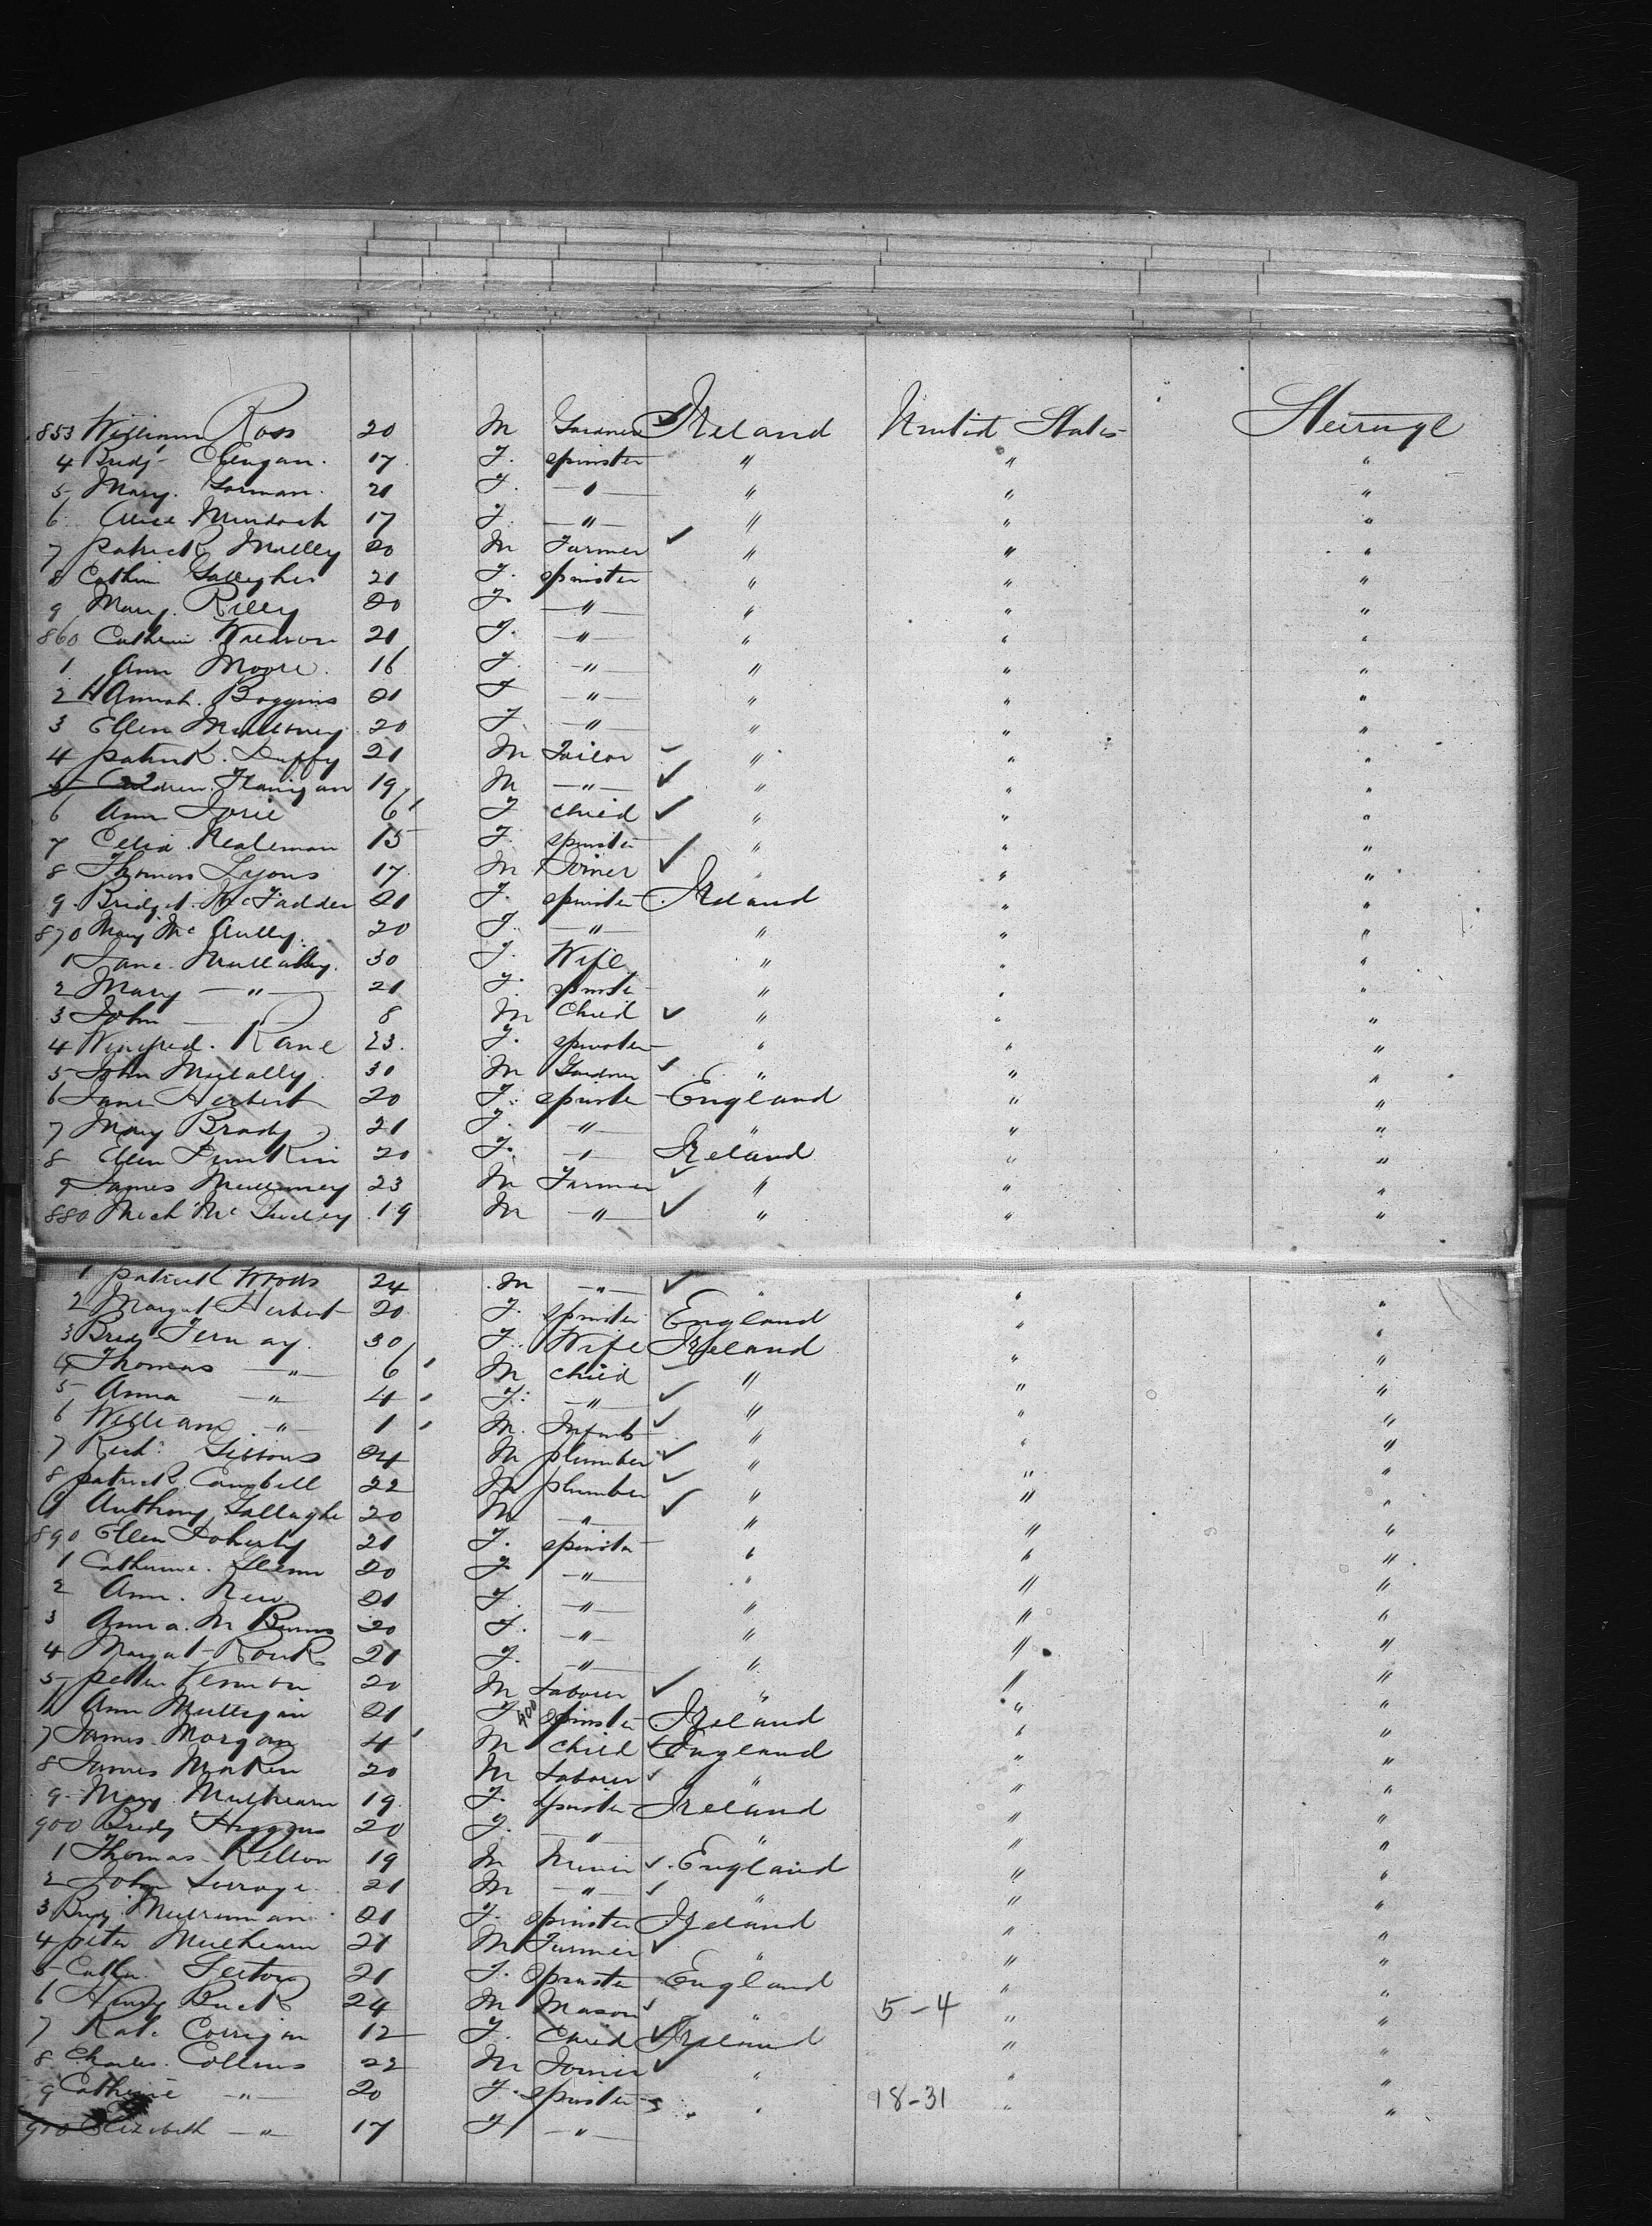 853 William Ross 20 M Gardner Ireland United States Steirage
4 Bridj Clengan. 17 F. spinster " " "
5 Mary. Gorman. 21 F. — " — " " "
6 Alice Murdock 17 F. — " — " " "
7 patrick Mulley 20 M Farmer ✓ " " "
8 Cathim Gallegher 21 F. spinster " " "
9 Mary. Rielly 20 F. — " — " " "
860 Catherin Waldron 21 F. — " — " " "
1 Ann Moore. 16 F. — " — " " "
2 HAnnah. Boggins 21 F — " — " " "
3 Ellen Mulloney 20 F. — " — " " "
4 patrick. Duffy 21 M Tailor ✓ " " "
5 Andrew. Flanigan 19 M — " — ✓ " " "
6 Ann 6 F child ✓ " " "
7 Celia. Nealeman 15 F. spinster " " "
8 Thomas Lyons 17 M Joiner ✓ " " "
9 Bridget. McFadden 21 F. spinster Ireland " "
870 Mary Mc Aully 20 F. — " — " " "
1 Jane. Mullally. 30 F. Wife " " "
2 Mary — " — 21 F. spinster " " "
3 John — 8 M Child ✓ " " "
4 Winifred. Kane 23. F. spinster " " "
5 John Mullally 30 M Gardner ✓ " " "
6 Jane Herbert 20 F. spinster England " "
7 Mary Brady 21 F. — " — " " "
8 Ellen 20 F. — " — Ireland " "
9 James Mulvaney 23 M Farmer ✓ " " "
880 Mich Mc 19 M — " — ✓ " " "
1 patrick Woods 24 M — " — ✓ " " "
2 Margat Herbert 20 F. spinster England " "
3 Bridj 30 F. Wife Ireland " "
4 Thomas — " — 6 M child ✓ " " "
5 Anna — " — 4 F. — " — ✓ " " "
6 William — " — 1 M. Infant ✓ " " "
7 Richd Gibbons 24 M plumber ✓ " " "
8 patrick Campbell 22 M plumber ✓ " " "
9 Anthony Gallaghe 20 M — " — ✓ " " "
890 Ellen Doherty 21 F. spinster " " "
1 Catherine. Glenn 20 F. — " — " " "
2 Ann. 21 F. — " — " " "
3 Anna. M Burns 20 F. — " — " " "
4 Margat Rourk 21 F. — " — " " "
5 petter Vernon 20 M Laborer ✓ " " "
6 Ann Mulligan 21 F spinster Ireland " "
7 James Morgan 4 M child ✓ England " "
8 James Maken 20 M Laborer ✓ " " "
9 Mary Mulhearn 19 F. spinster Ireland " "
900 Bridj Higgins 20 F. — " — " " "
1 Thomas Kelton 19 M Miner ✓ England " "
2 John 21 M — " — ✓ " " "
3 Bridj. Mulrunnan 21 F. spinster Ireland " "
4 peter Mulhearn 21 M Farmer ✓ " " "
5 Cathn. Sexton 21 F. Spinster England " "
6 Henry Buck 24 M Mason ✓ " 5-4 " "
7 Kate Corrigan 12 F. Child ✓ Ireland " "
8 Charles. Collins 22 M Joiner ✓ " " "
9 Catherine — " — 20 F. spinster " 18-31 " "
910 Elizabeth — " — 17 F — " —